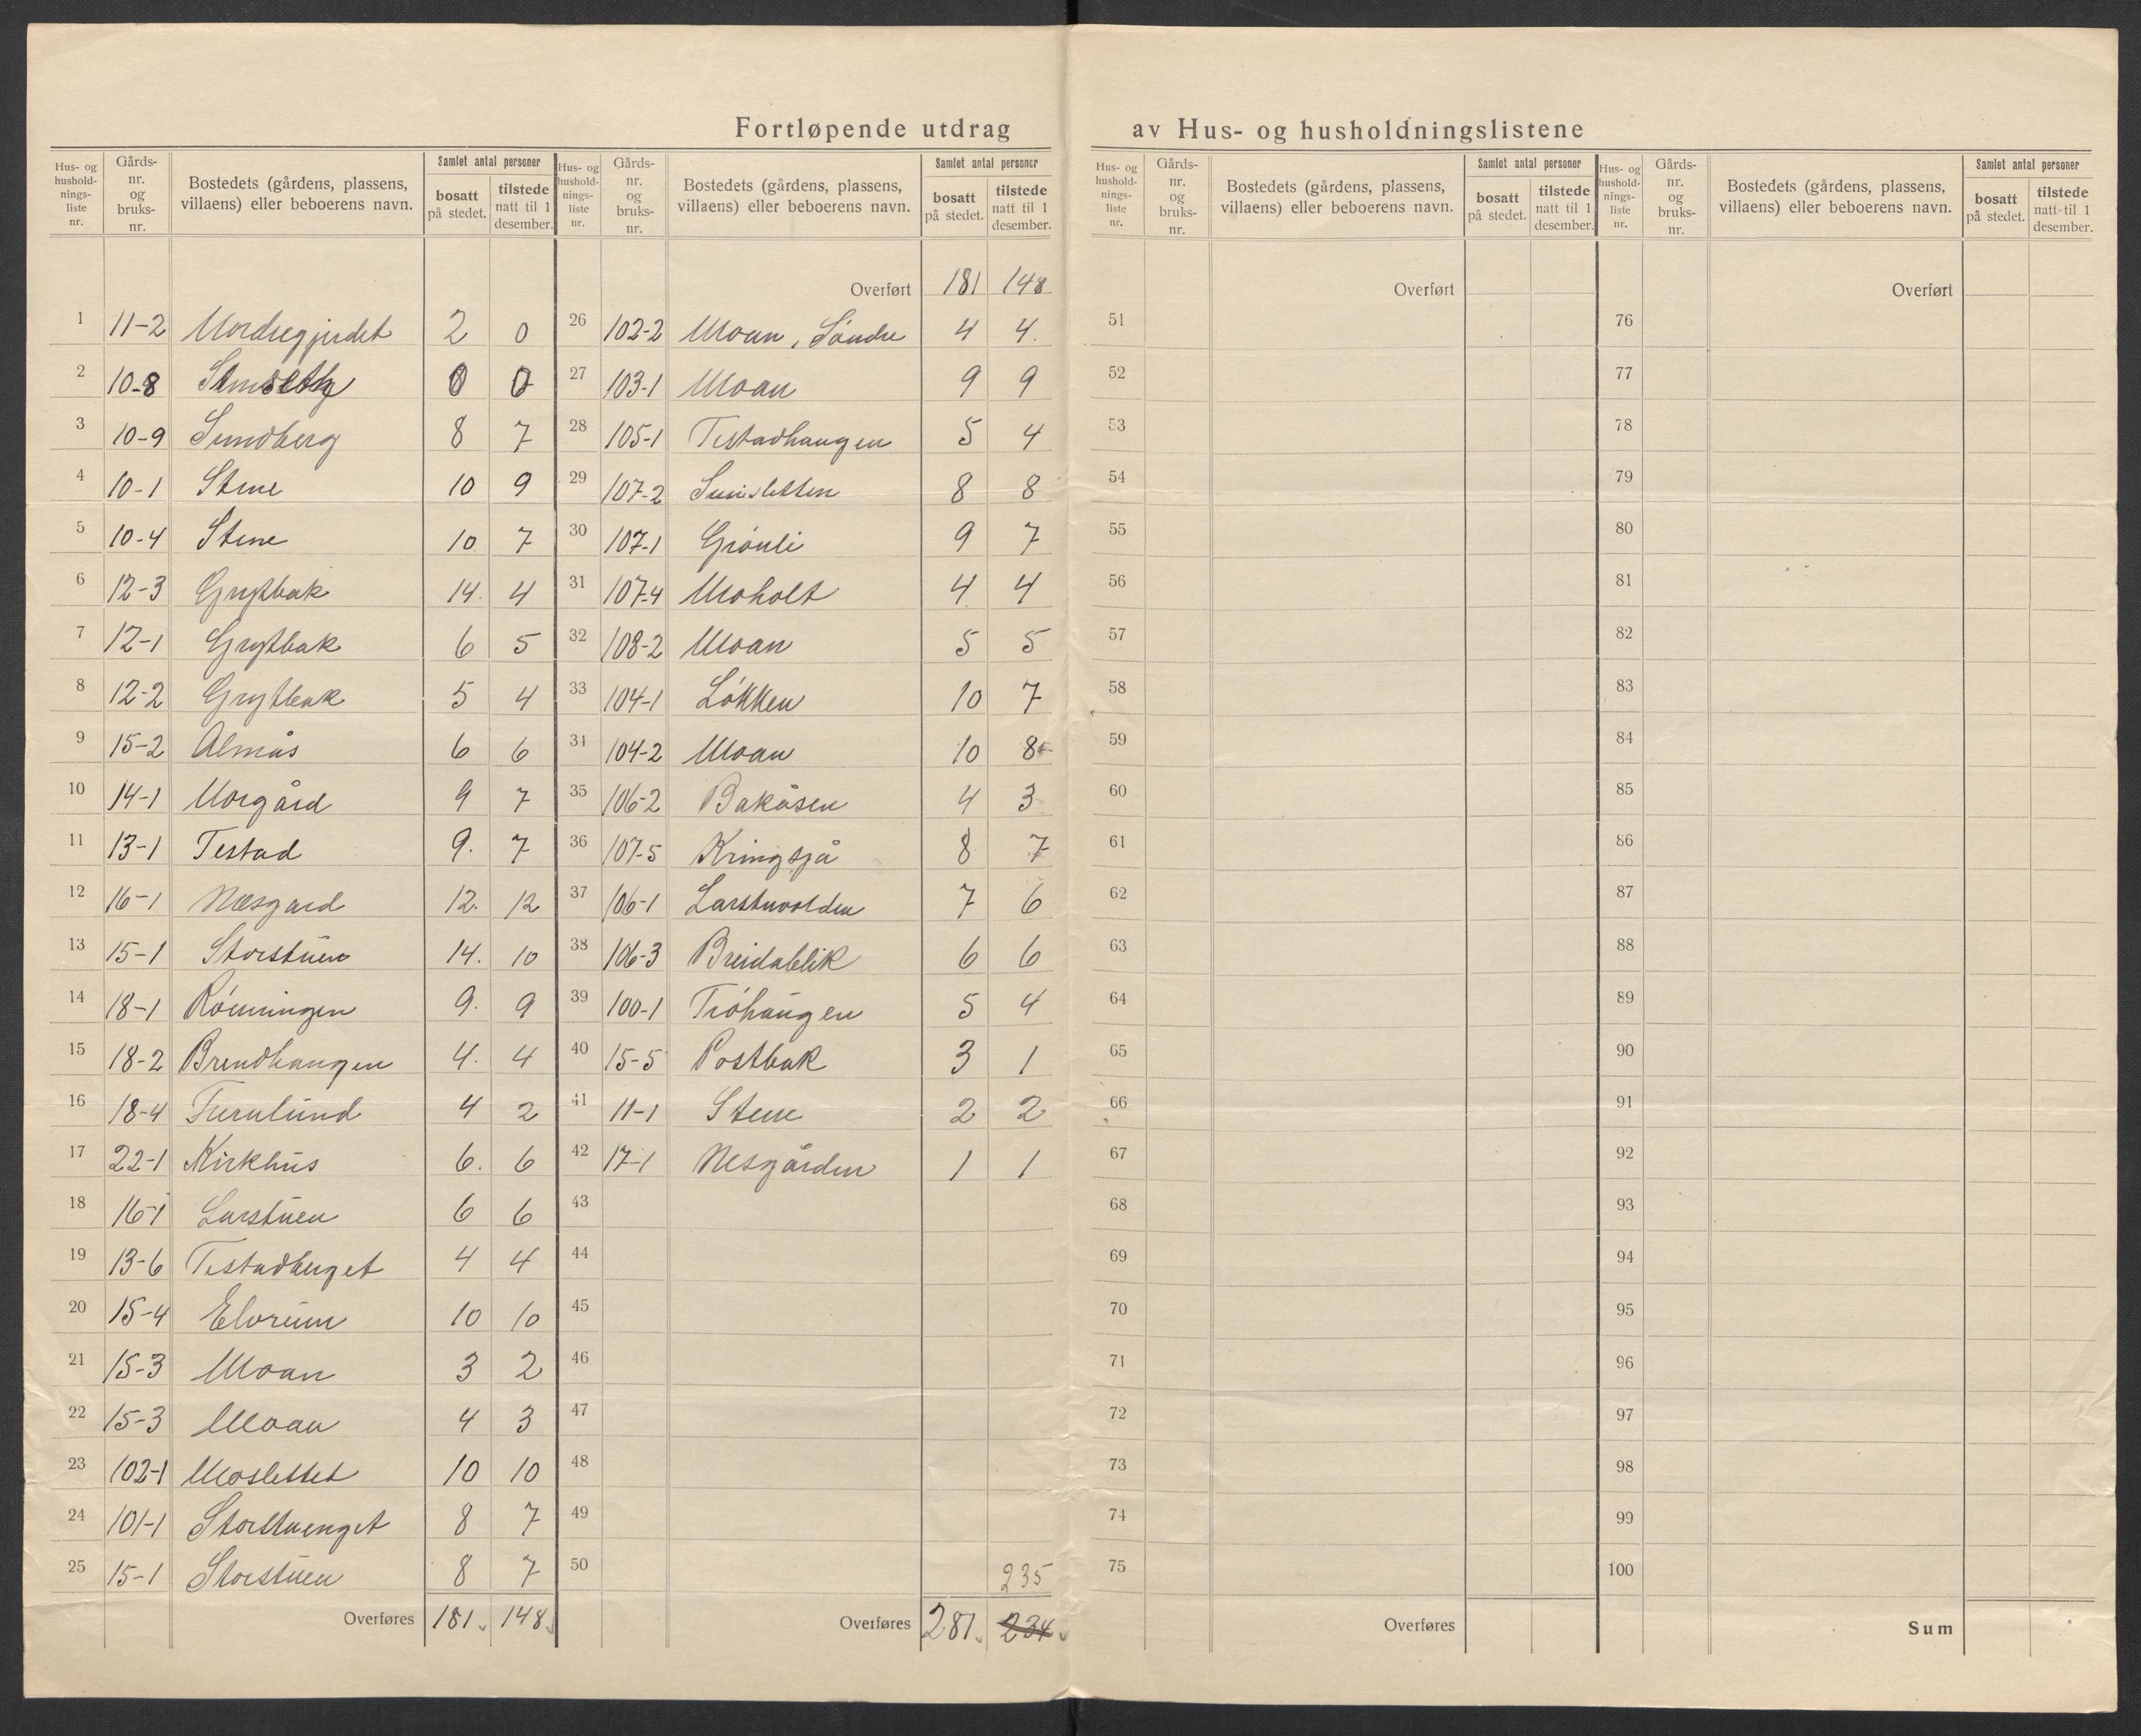 Fortløpende utdrag av Hus- og husholdningslistene
Hus- og hushold-nings-liste nr. | Gårds-nr. og bruks-nr. | Bostedets (gårdens, plassens, villaens) eller beboerens navn. | Samlet antal personer bosatt på stedet. | tilstede natt til 1 desember.
1 11-2 Nordregjerdet 2 0
2 10-8 0 0
3 10-9 Sundberg 8 7
4 10-1 Stene 10 9
5 10-4 Stene 10 7
6 12-3 Grytbak 14. 4
7 12-1 Grytbak 6 5
8 12-2 Grytbak 5 4
9 15-2 Almås 6 6
10 14-1 Norgård 9 7
11 13-1 Testad 9. 7
12 16-1 Næsgard 12. 12
13 15-1 Storstuen 14. 10
14 18-1 Rönningen 9. 9
15 18-2 Brendhaugen 4. 4
16 18-4 Furulund 4 2
17 22-1 Kirkhus 6. 6
18 16-1 Larstuen 6 6
19 13-6 Testadberget 4 4
20 15-4 Elvrum 10 10
21 15-3 Moan 3 2
22 15-3 Moan 4 3
23 102-1 Moslettet 10 10
24 101-1 Storstuenget 8 7
25 15-1 Storstuen 8 7
Overføres 181 148
Hus- og hushold-nings-liste nr. | Gårds-nr. og bruks-nr. | Bostedets (gårdens, plassens, villaens) eller beboerens navn. | Samlet antal personer bosatt på stedet. | tilstede natt til 1 desember.
Overført 181 148
26 102-2 Moan, Söndre 4 4.
27 103-1 Moan 9 9
28 105-1 Testadhaugen 5 4
29 107-2 8 8
30 107-1 Grönli 9 7
31 107-4 Moholt 4 4
32 108-2 Moan 5 5
33 104-1 Lökken 10 7
34 104-2 Moan 10 8
35 106-2 Bakåsen 4 3
36 107-5 Kringsjå 8 7
37 106-1 Larstuvolden 7 6
38 106-3 Breidablik 6 6
39 100-1 Tröhaugen 5 4
40 15-5 Postbak 3 1
41 11-1 Stene 2 2
42 17-1 Nesgården 1 1
43
44
45
46
47
48
49
50 235
Overføres 281 234
Hus- og hushold-nings-liste nr. | Gårds-nr. og bruks-nr. | Bostedets (gårdens, plassens, villaens) eller beboerens navn. | Samlet antal personer bosatt på stedet. | tilstede natt til 1 desember.
Overført
51
52
53
54
55
56
57
58
59
60
61
62
63
64
65
66
67
68
69
70
71
72
73
74
75
Overføres
Hus- og hushold-nings-liste nr. | Gårds-nr. og bruks-nr. | Bostedets (gårdens, plassens, villaens) eller beboerens navn. | Samlet antal personer bosatt på stedet. | tilstede natt til 1 desember.
Overført
76
77
78
79
80
81
82
83
84
85
86
87
88
89
90
91
92
93
94
95
96
97
98
99
100
Sum